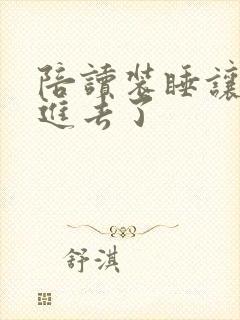 陪讀装睡讓
進去了
舒淇